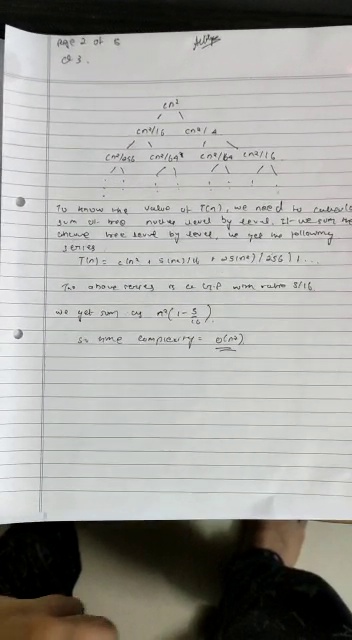 Page 2 of 6
Q 3.
cn²
cn²/16 cn²/4
cn²/256 cn²/64 cn²/64 cn²/16
To know the value of T(n), we need to calculate
sum of tree nodes level by level. If we sum the
above tree level by level, we get the following
series
T(n) = c(n² + 5(n²)/16 + 25(n²)/256) + ...
The above series is a G.P with ratio 5/16
we get sum as n²(1 - 5/16)
so time complexity = O(n²)